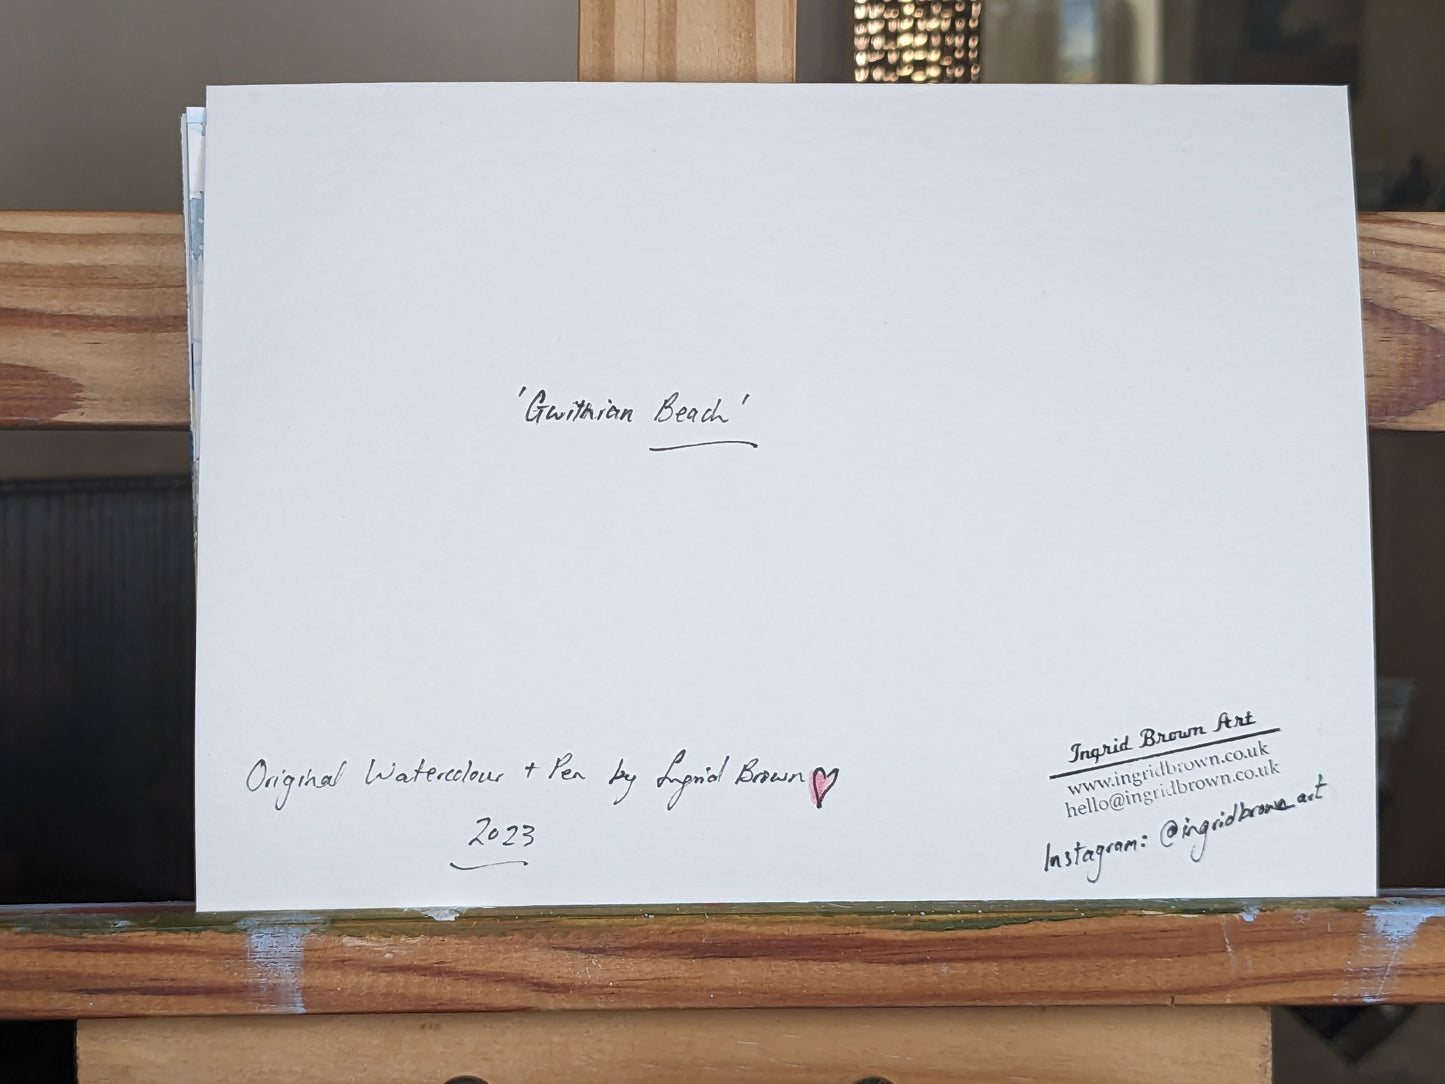 'Gwithian Beach'
Original Watercolour + Pen by Ingrid Brown
2023
Ingrid Brown Art
www.ingridbrown.co.uk
hello@ingridbrown.co.uk
Instagram: @ingridbrown_art